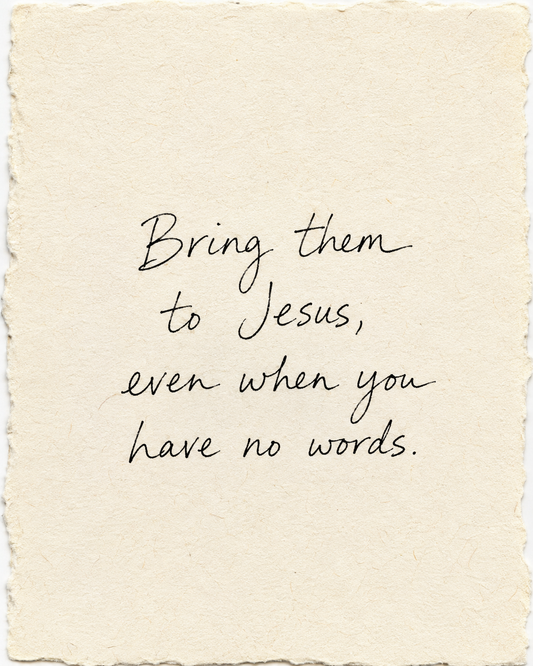 Bring them
to Jesus,
even when you
have no words.